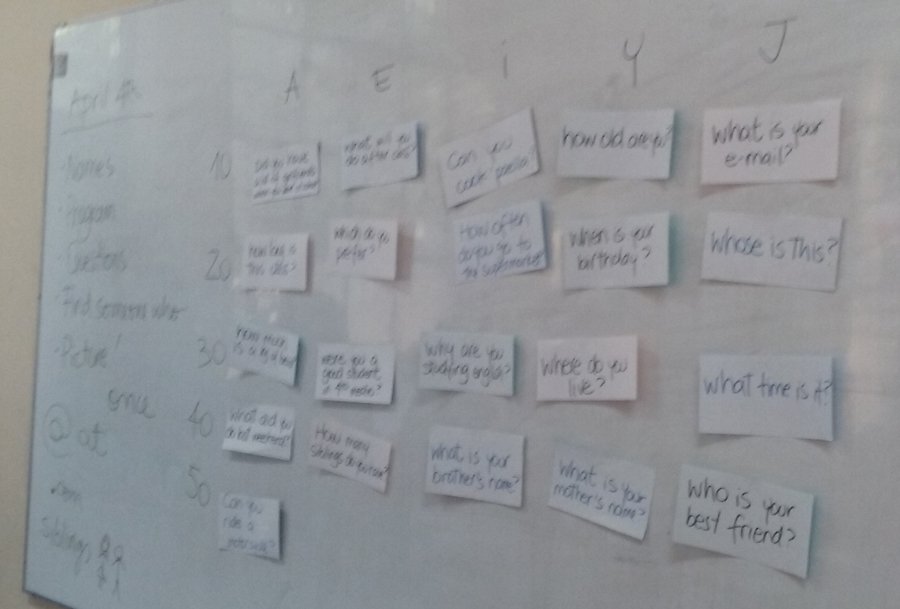 April 4th
· Names
· Program
· Questions
· Find someone who
· Picture!
once
@ at
.com
Siblings
A E i Y J
10
20
30
40
50
Did you have
what will you
do after class?
Can you
cook
how old are you?
What is your
e-mail?
how long is
this class?
which do you
prefer?
How often
do you go to
the supermarket?
When is your
birthday?
Whose is This?
how much
is a
were you a
good student
in 4th medio?
why are you
studying english?
Where do you
live?
What time is it?
What did you
do last weekend?
How many
siblings do you have?
What is your
brother's name?
What is your
mother's name?
Who is your
best friend?
Can you
ride a
motorcycle?